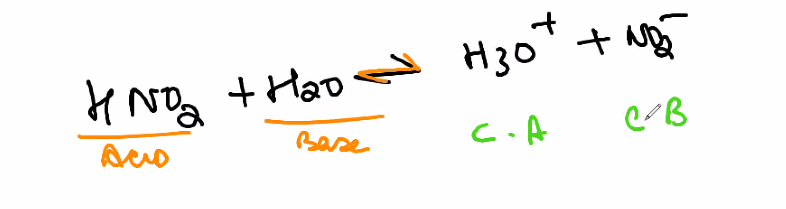 HNO₂ + H₂O ⇌ H₃O⁺ + NO₂⁻
Acid Base C.A C.B